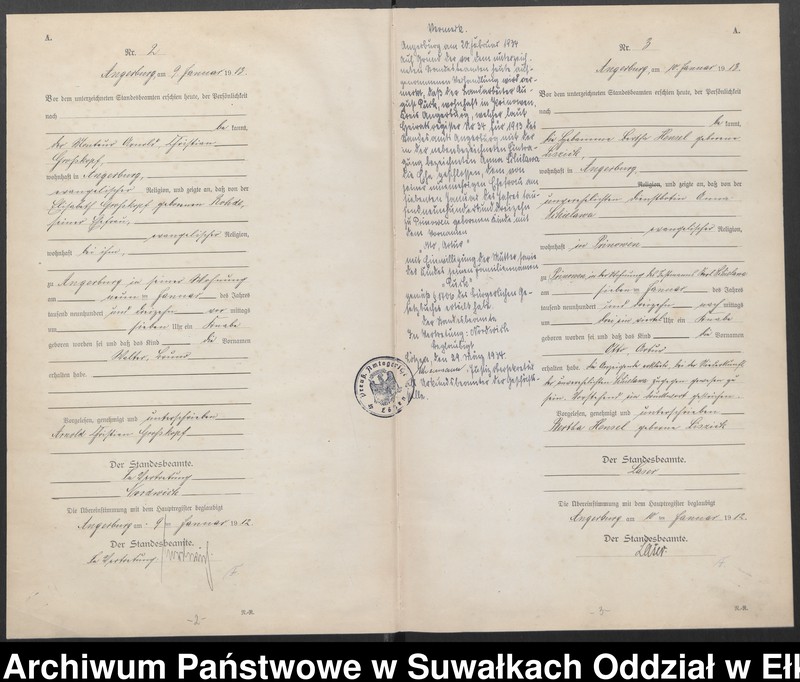 A.
Nr. 2
Angerburg am 9 Januar 1913.
Vor dem unterzeichneten Standesbeamten erschien heute, der Persönlichkeit
nach
be kannt,
der Monteur Arnold Christian
Großkopf,
wohnhaft in Angerburg,
evangelischer Religion, und zeigte an, daß von der
Elisabeth Großkopf geborenen
seiner Ehefrau,
evangelischer Religion,
wohnhaft bei ihm,
zu Angerburg in seiner Wohnung
am neunten Januar des Jahres
tausend neunhundert und dreizehn vor mittags
um sieben Uhr ein Knabe
geboren worden sei und daß das Kind die Vornamen
Walter Bruno
erhalten habe.
Vorgelesen, genehmigt und unterschrieben
Arnold Christian Großkopf
Der Standesbeamte.
In Vertretung
Nordwich
Die Übereinstimmung mit dem Hauptregister beglaubigt
Angerburg am 9 ten Januar 1912.
Der Standesbeamte.
In Vertretung
R.-B.
-2-
Vermerk.
Angerburg am 20 Februar 1934
Auf Grund der vor dem unterzeich-
neten Standesbeamten heute auf-
genommenen Verhandlung wird ver-
merkt, daß der Landarbeiter Au-
gust wohnhaft in
Kreis Angerburg, welcher laut
Heiratsregister Nr 34 für 1913 des
Standesamts Angerburg mit der
in der nebenbezeichneten Eintra-
gung bezeichneten Anna
die Ehe geschlossen, dem von
seiner nunmehrigen Ehefrau am
siebenten Januar des Jahres tau-
sendneunhundertunddreizehn
zu geborenen Kinde mit
dem Vornamen
"Otto Artur"
mit Einwilligung der Mutter sowie
des Kindes seinen Familiennamen
gemäß § 1706 des Bürgerlichen Ge-
setzbuches erteilt hat.
Der Standesbeamte
In Vertretung: Nordwich
beglaubigt
den 29 März 1934.
Justizobersekretär
als Urkundsbeamter der Geschäfts-
stelle.
Preuß. Amtsgericht
A.
Nr. 3
Angerburg, am 10. Januar 1913.
Vor dem unterzeichneten Standesbeamten erschien heute, der Persönlichkeit
nach
be kannt,
die Hebamme Bertha Hensel geborene
wohnhaft in Angerburg,
Religion, und zeigte an, daß von der
unverehelichten Dienstbotin Anna
evangelischer Religion,
wohnhaft in
zu in der Wohnung des
am siebenten Januar des Jahres
tausend neunhundert und dreizehn nach mittags
um drei ein viertel Uhr ein Knabe
geboren worden sei und daß das Kind die Vornamen
Otto Artur
erhalten habe. Die Anzeigende erklärte, bei der Niederkunft
der unverehelichten zugegen gewesen zu
sein.
Vorgelesen, genehmigt und unterschrieben
Bertha Hensel geborene
Der Standesbeamte.
Laser
Die Übereinstimmung mit dem Hauptregister beglaubigt
Angerburg am 10 ten Januar 1912.
Der Standesbeamte.
Laser
R.-B.
-3-
Archiwum Państwowe w Suwałkach Oddział w Ełk